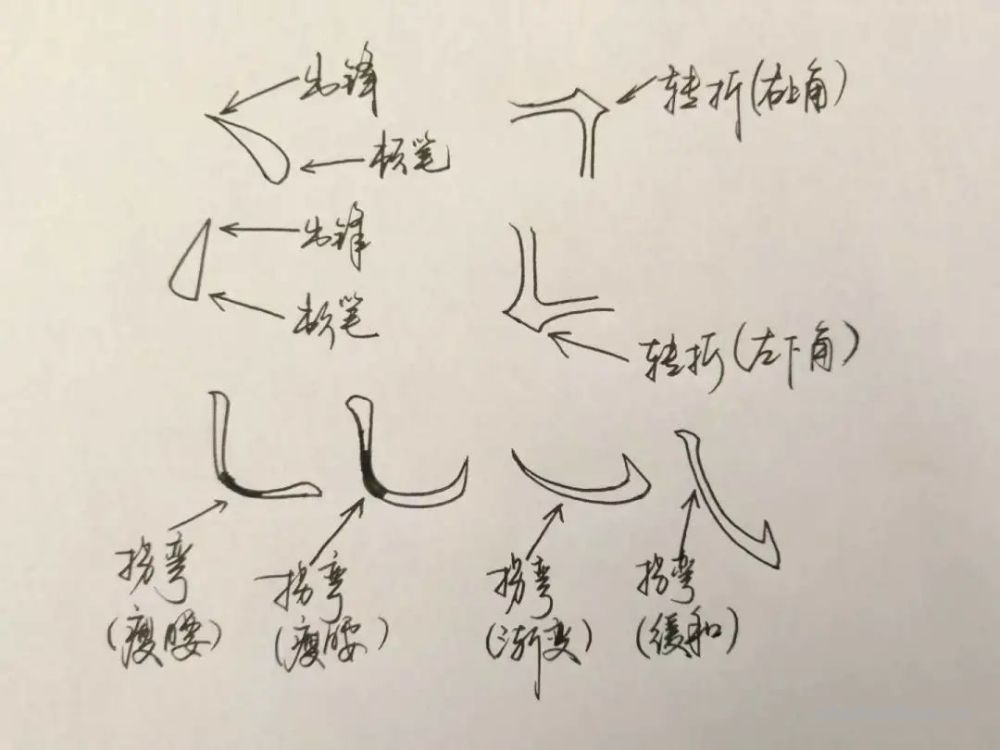 出锋
转折(右上角)
顿笔
出锋
顿笔
转折(左下角)
拐弯
(瘦腰)
拐弯
(瘦腰)
拐弯
(渐变)
拐弯
(缓和)